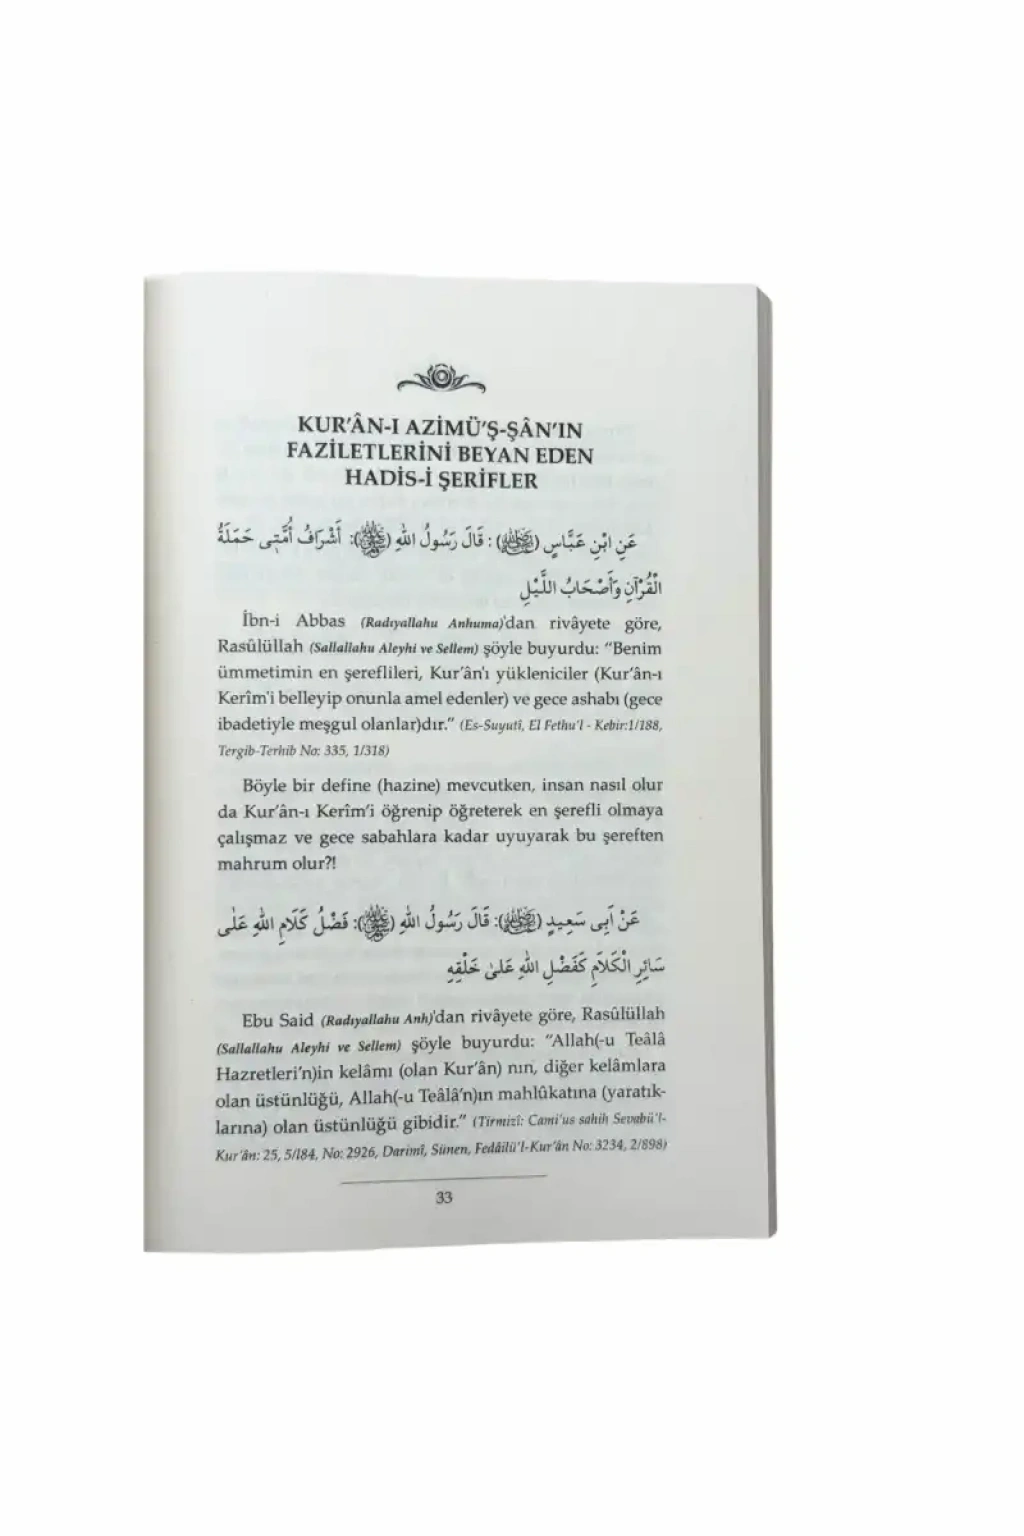 KUR'ÂN-I AZİMÜ'Ş-ŞÂN'IN
FAZİLETLERİNİ BEYAN EDEN
HADİS-İ ŞERİFLER
عَنِ ابْنِ عَبَّاسٍ (رضي الله عنهما): قَالَ رَسُولُ اللهِ (ﷺ): أَشْرَافُ أُمَّتِى حَمَلَةُ
الْقُرْآنِ وَأَصْحَابُ اللَّيْلِ
İbn-i Abbas (Radıyallahu Anhuma)'dan rivâyete göre,
Rasûlüllah (Sallallahu Aleyhi ve Sellem) şöyle buyurdu: "Benim
ümmetimin en şereflileri, Kur'ân'ı yükleniciler (Kur'ân-ı
Kerîm'i belleyip onunla amel edenler) ve gece ashabı (gece
ibadetiyle meşgul olanlar)dır." (Es-Suyutî, El Fethu'l - Kebir:1/188,
Tergib-Terhib No: 335, 1/318)
Böyle bir define (hazine) mevcutken, insan nasıl olur
da Kur'ân-ı Kerîm'i öğrenip öğreterek en şerefli olmaya
çalışmaz ve gece sabahlara kadar uyuyarak bu şereften
mahrum olur?!
عَنْ اَبِى سَعِيدٍ (رضي الله عنه): قَالَ رَسُولُ اللهِ (ﷺ): فَضْلُ كَلَامِ اللهِ عَلٰى
سَائِرِ الْكَلَامِ كَفَضْلِ اللهِ عَلٰى خَلْقِهِ
Ebu Said (Radıyallahu Anh)'dan rivâyete göre, Rasûlüllah
(Sallallahu Aleyhi ve Sellem) şöyle buyurdu: "Allah(-u Teâlâ
Hazretleri'n)in kelâmı (olan Kur'ân) nın, diğer kelâmlara
olan üstünlüğü, Allah(-u Teâlâ'n)ın mahlûkatına (yaratık-
larına) olan üstünlüğü gibidir." (Tirmizî: Cami'us sahih Sevabü'l-
Kur'ân: 25, 5/184, No: 2926, Darimî, Sünen, Fedâilü'l-Kur'ân No: 3234, 2/898)
33